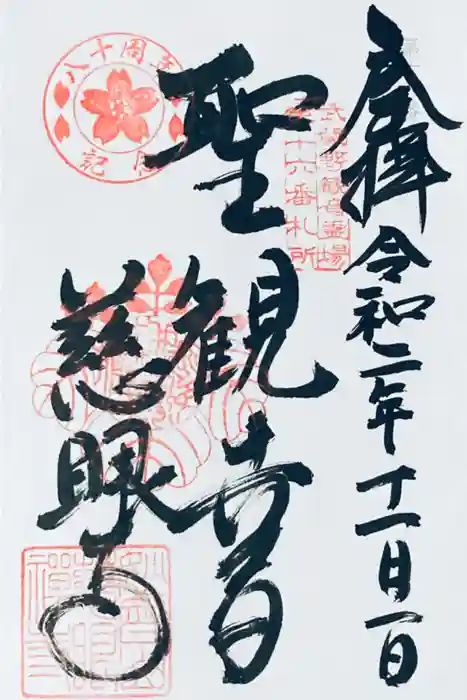 奉拝 令和二年十一月一日
武蔵野観音霊場
第十六番札所
聖観音
八十周年記念
慈眼寺